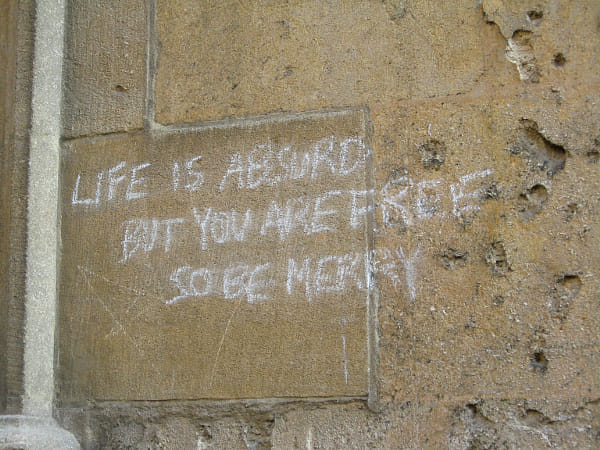 LIFE IS ABSURD
BUT YOU ARE FREE
SO BE MERRY